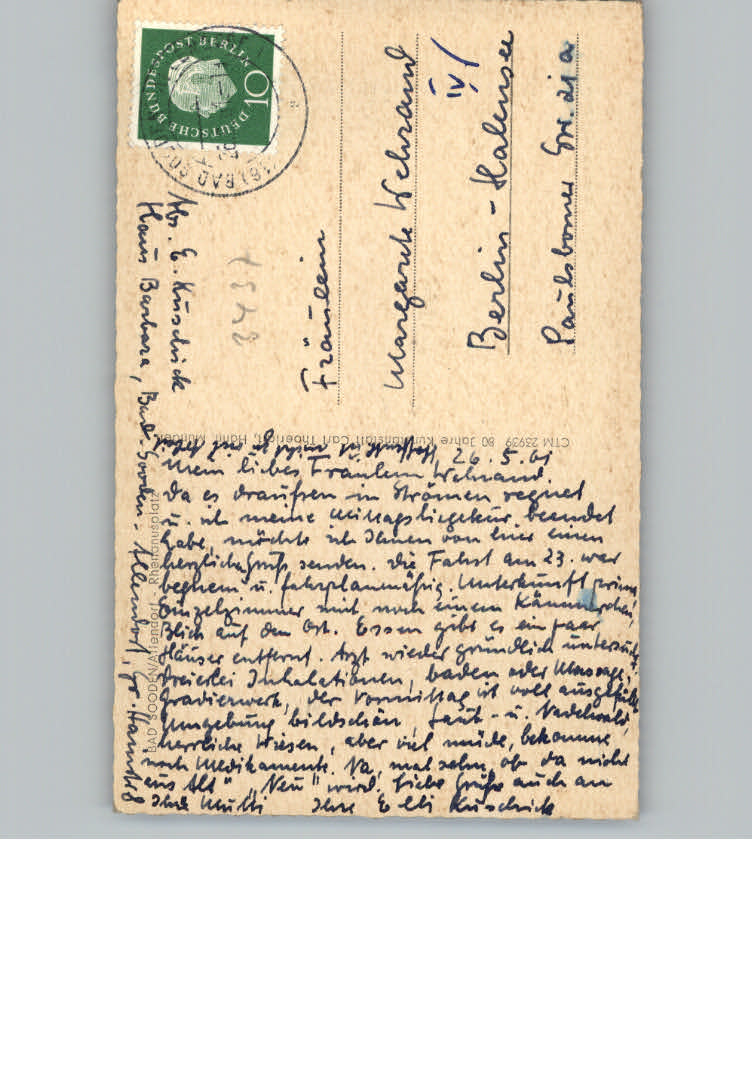 DEUTSCHE BUNDESPOST BERLIN
10
(16) BAD SOODEN
Abs. E. Kuschick
Haus Barbara, Bad-Sooden-Allendorf, Gr.
Fräulein
Margarete Wehrand
IV
Berlin-Halensee
Paulsborner Str. 21a
CTM 23939 80 Jahre Kunstanstalt Carl Thoericht, Hann. Münden
BAD SOODEN/Allendorf - Rhenanusplatz
26.5.61
Mein liebes Fräulein Wehrand.
Da es draußen in Strömen regnet
u. ich meine Mittagsliegekur beendet
habe, möchte ich Ihnen von hier einen
herzlichen Gruß senden. Die Fahrt am 23. war
bequem u. fahrplanmäßig. Unterkunft prima,
Einzelzimmer mit noch einem Kämmerchen,
Blick auf den Ort. Essen gibt es ein paar
Häuser entfernt. Arzt wieder gründlich untersucht,
dreierlei Inhalationen, baden oder Massage,
Gradierwerk, der Vormittag ist voll ausgefüllt.
Umgebung bildschön, Laub- u. Nadelwald,
herrliche Wiesen, aber viel müde, bekomme
noch Medikamente. Na, mal sehn, ob da nicht
aus Alt" „Neu" wird. Liebe Grüße auch an
Ihre Mutti Ihre Elli Kuschick